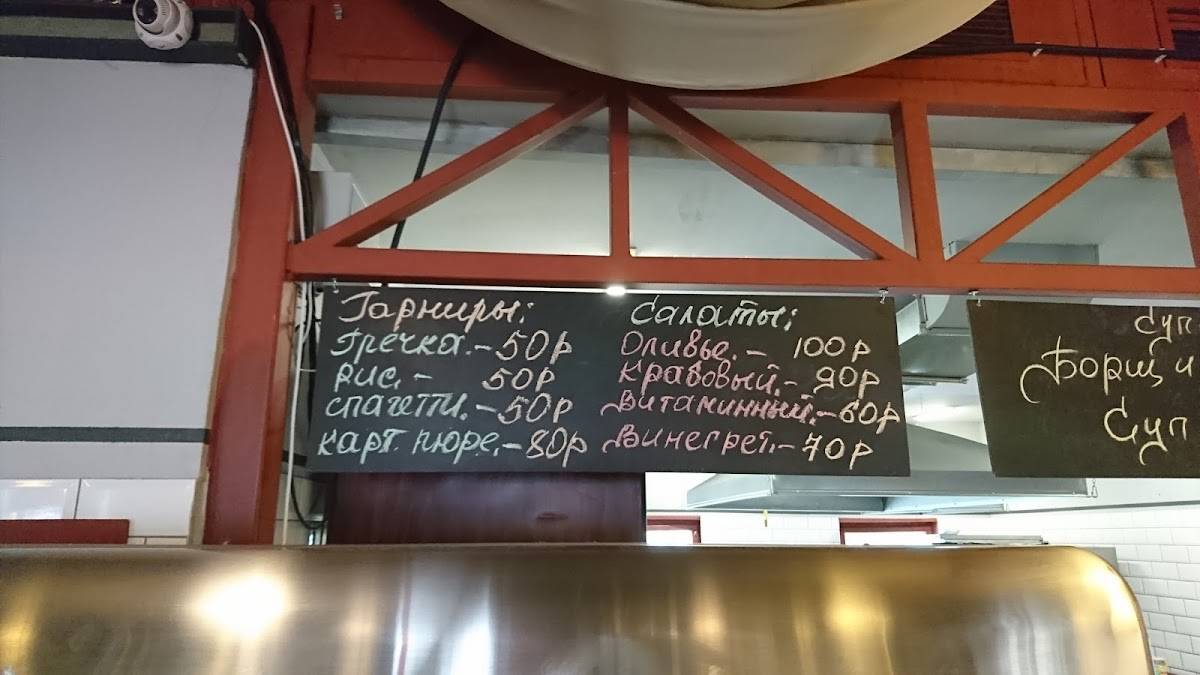 Гарниры:
Гречка.-50р
рис.- 50р
спагетти.-50р
карт. пюре.-80р
Салаты:
Оливье.- 100р
крабовый.-90р
витаминный.-60р
Винегрет.-70р
Суп
Борщ и
Суп